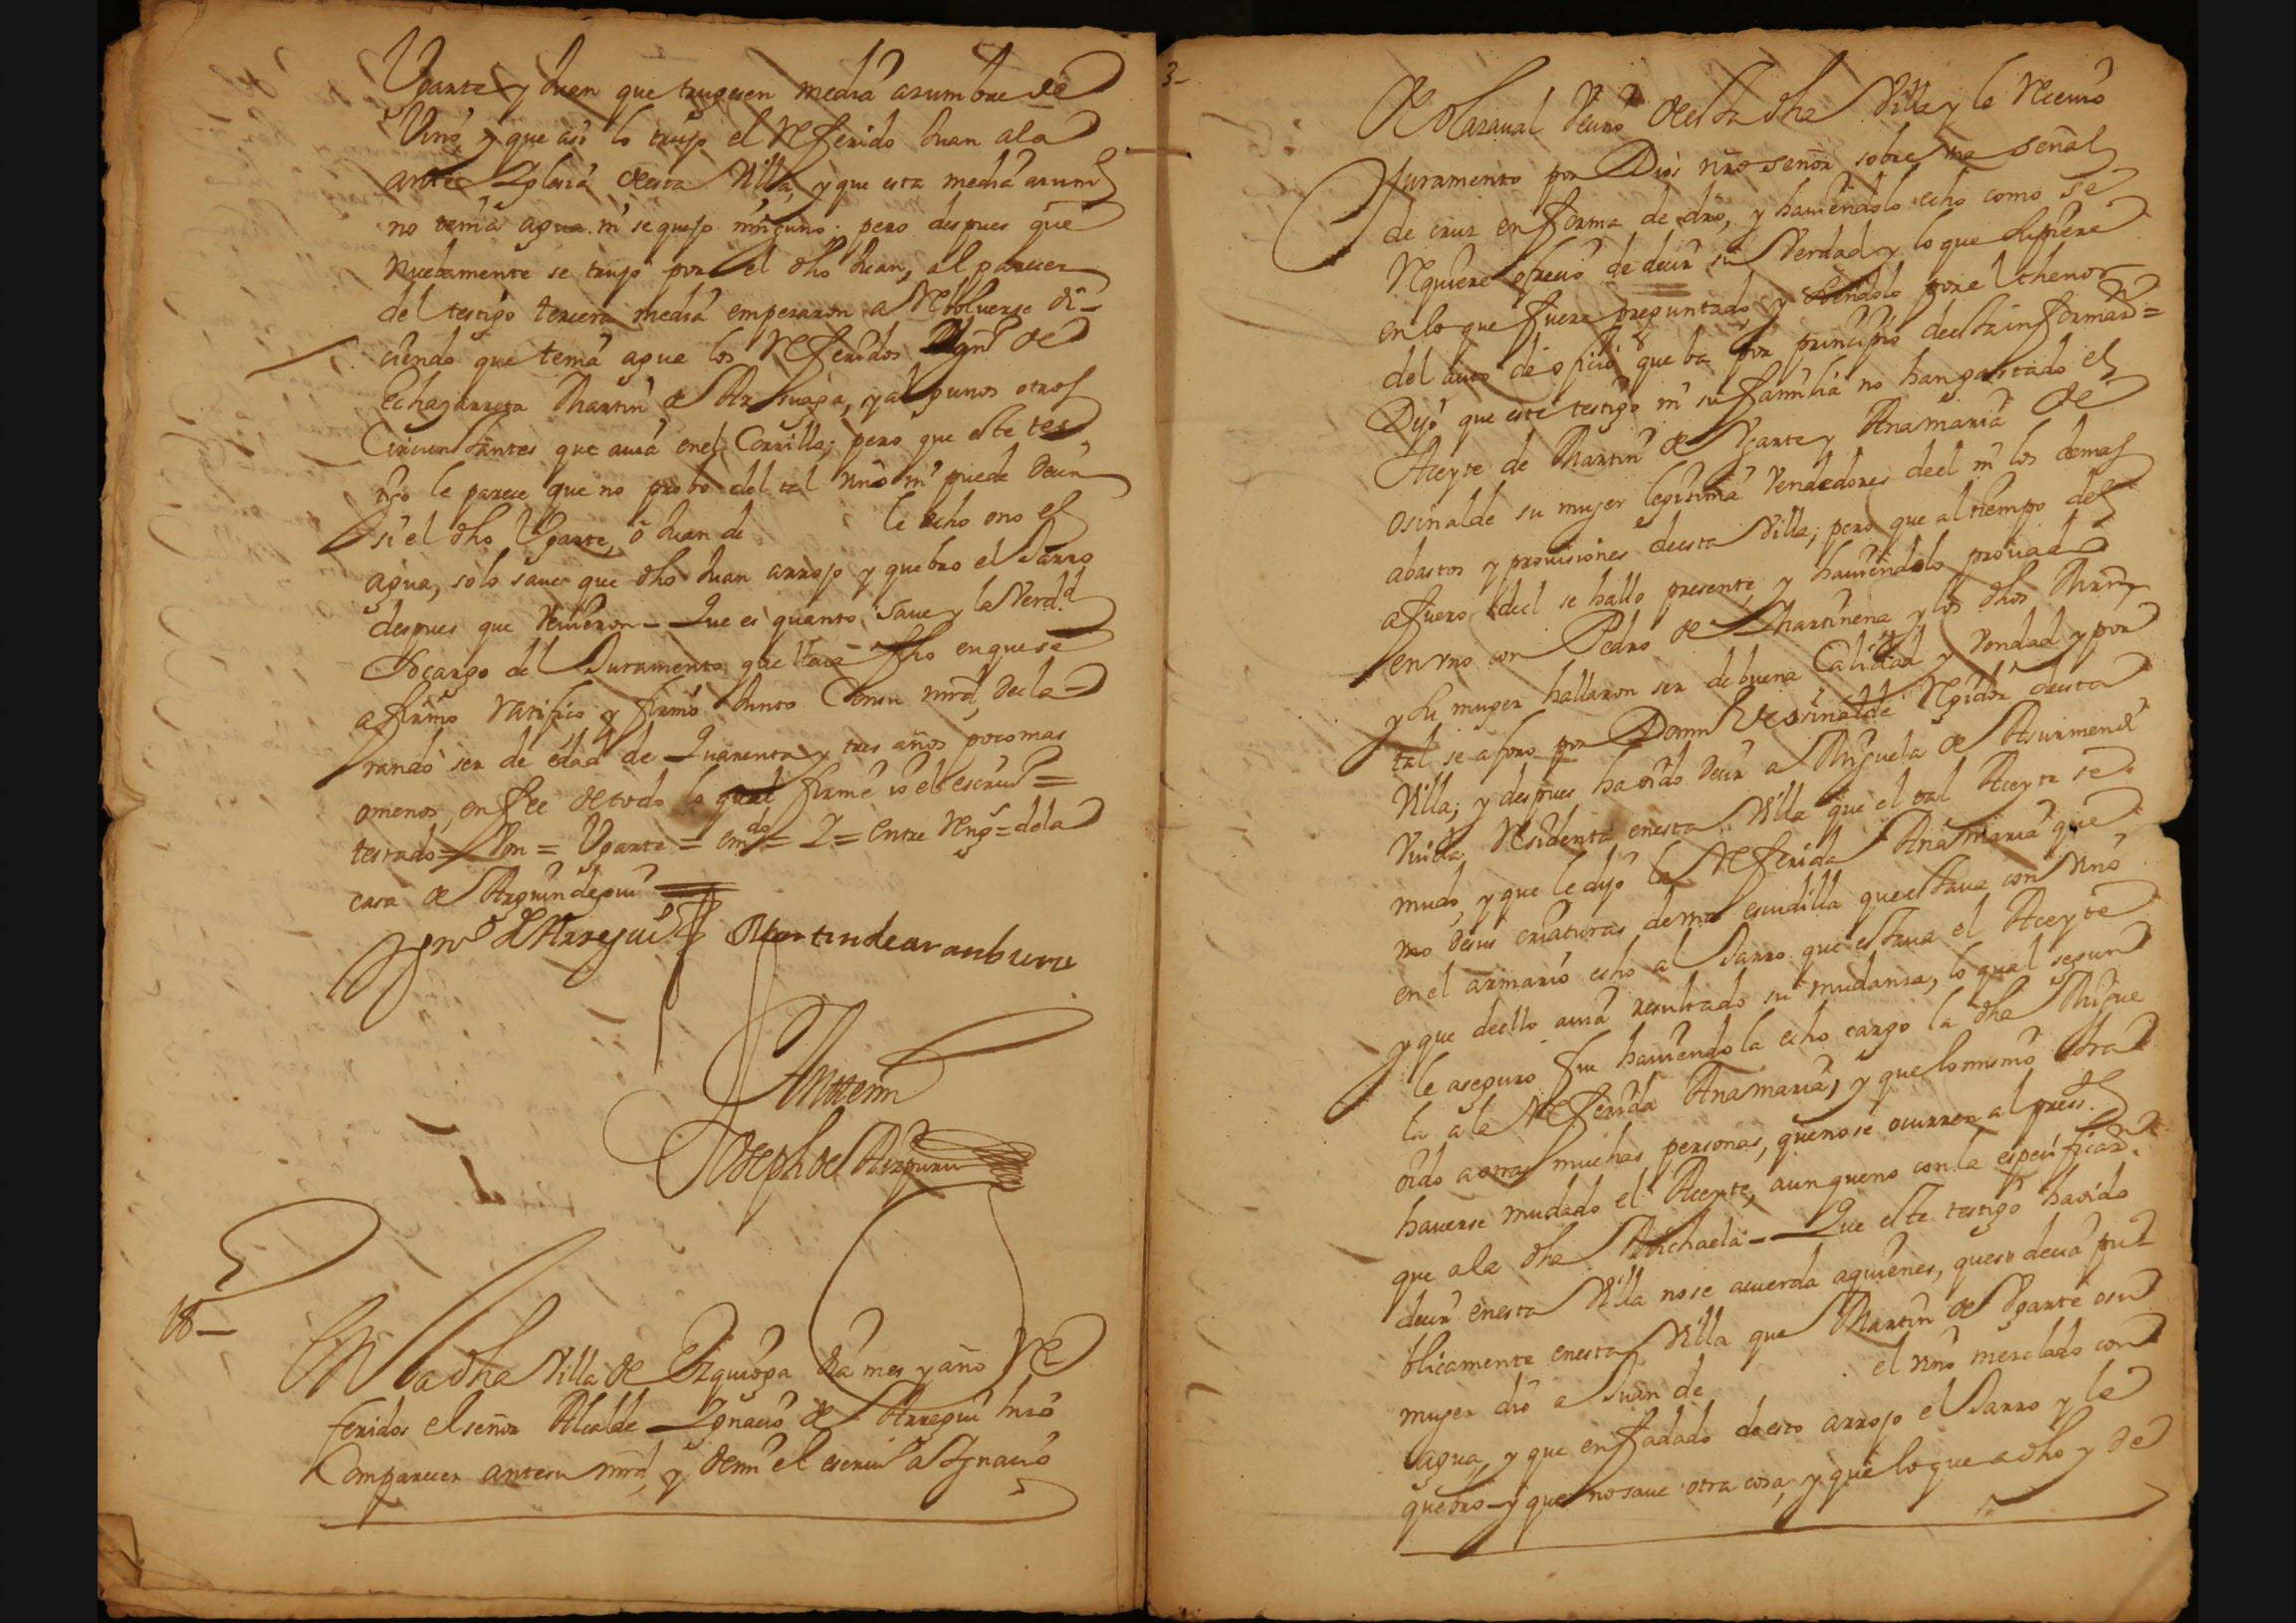 Vgarte y Juan que trugesen media azumbre de
Vino, y que asi lo trujo el Referido Juan a la
ante Iglesia desta Villa, y que esta media azum.e
no tenia agua ni se quejo ninguno. pero despues que
Nuebamente se trujo por el dho Juan, al parecer
del testigo tercera media empezaron a Rebolverse di-
ciendo que tenia agua los Referidos Ygn.o de
Echajarreta Martin de Arsuaga, y algunos otros
Circunstantes que auia en el Corrillo; pero que este tes-
tigo le parece que no probo del tal Vino ni puede decir
si el dho Vgarte, o Juan de le echo o no el
agua, solo saue que dho Juan arrojo y quebro el Jarro
despues que Veuieron - Que es quanto saue y la Verd.d
So cargo del Juramento que lleua fho en que se
afirmo ratifico y firmo Junto con su mrd, decla-
rando ser de edad de Quarenta y tres años poco mas
o menos, en fee de todo lo qual firme io el escriu.o =
testado = Non = Vgarte = em.do = I = entre reng.s = de la
casa de Arguindegui =
Ygn.o de Arregui Martin de aranburu
Ante mi
Joseph de Aizpuru
18 -
En la dha Villa de Ezquioga dia mes y año Re
feridos el señor Alcalde Ignacio de Arregui hizo
Comparecer ante su mrd, y de mi el escriu.o a Ygnacio
3 -
de Olazaual Vecino desta dha Villa y le Receuio
Juramento por Dios nro señor sobre vna señal
de cruz en forma de dro, y hauiendolo echo como se
Requiere ofrecio de decir su Verdad y lo que supiere
en lo que fuere preguntado, y siendolo por el thenor
del auto de oficio que ba por principio desta informaz.n =
Dijo que este testigo ni su familia no han gastado el
Aceyte de Martin de Vgarte y Ana maria de
Osinalde su mujer legitima Vendedores de el ni los demas
abastos y prouisiones desta Villa; pero que al tiempo del
afuero del se hallo presente, y hauiendolo prouado
en vno con Pedro de Martinena y los dhos Martin
y su muger hallaron ser de buena Calidad y Vondad y por
tal se aforo por Domin.o de Osinalde Regidor desta
Villa; y despues ha oido decir a Miguela de Asurmendi
Viuda Residenta en esta Villa que el tal Aceyte se
mudo, y que le dijo la Referida Ana maria que
vno de sus criaturas de vna escudilla que estaua con Vino
en el armario echo al Jarro que estaua el Aceyte
y que dello auia resultado su mudansa, lo qual segun
le aseguro fue hauiendola echo cargo la dha Migue
la a la Referida Ana maria, y que lo mismo ha
oido a otras muchas personas, que no se ocurren al press.te
hauerse mudado el Aceyte, aunque no con la espeçificaz.n
que a la dha Michaela - Que este testigo ha oido
decir en esta Villa no se acuerda a quienes, que se decia pu-
blicamente en esta Villa que Martin de Vgarte o su
muger dio a Juan de el vino mezclado con
agua, y que enfadado de esto arrojo el Jarro y le
quebro y que no saue otra cosa, y que lo que a dho y de